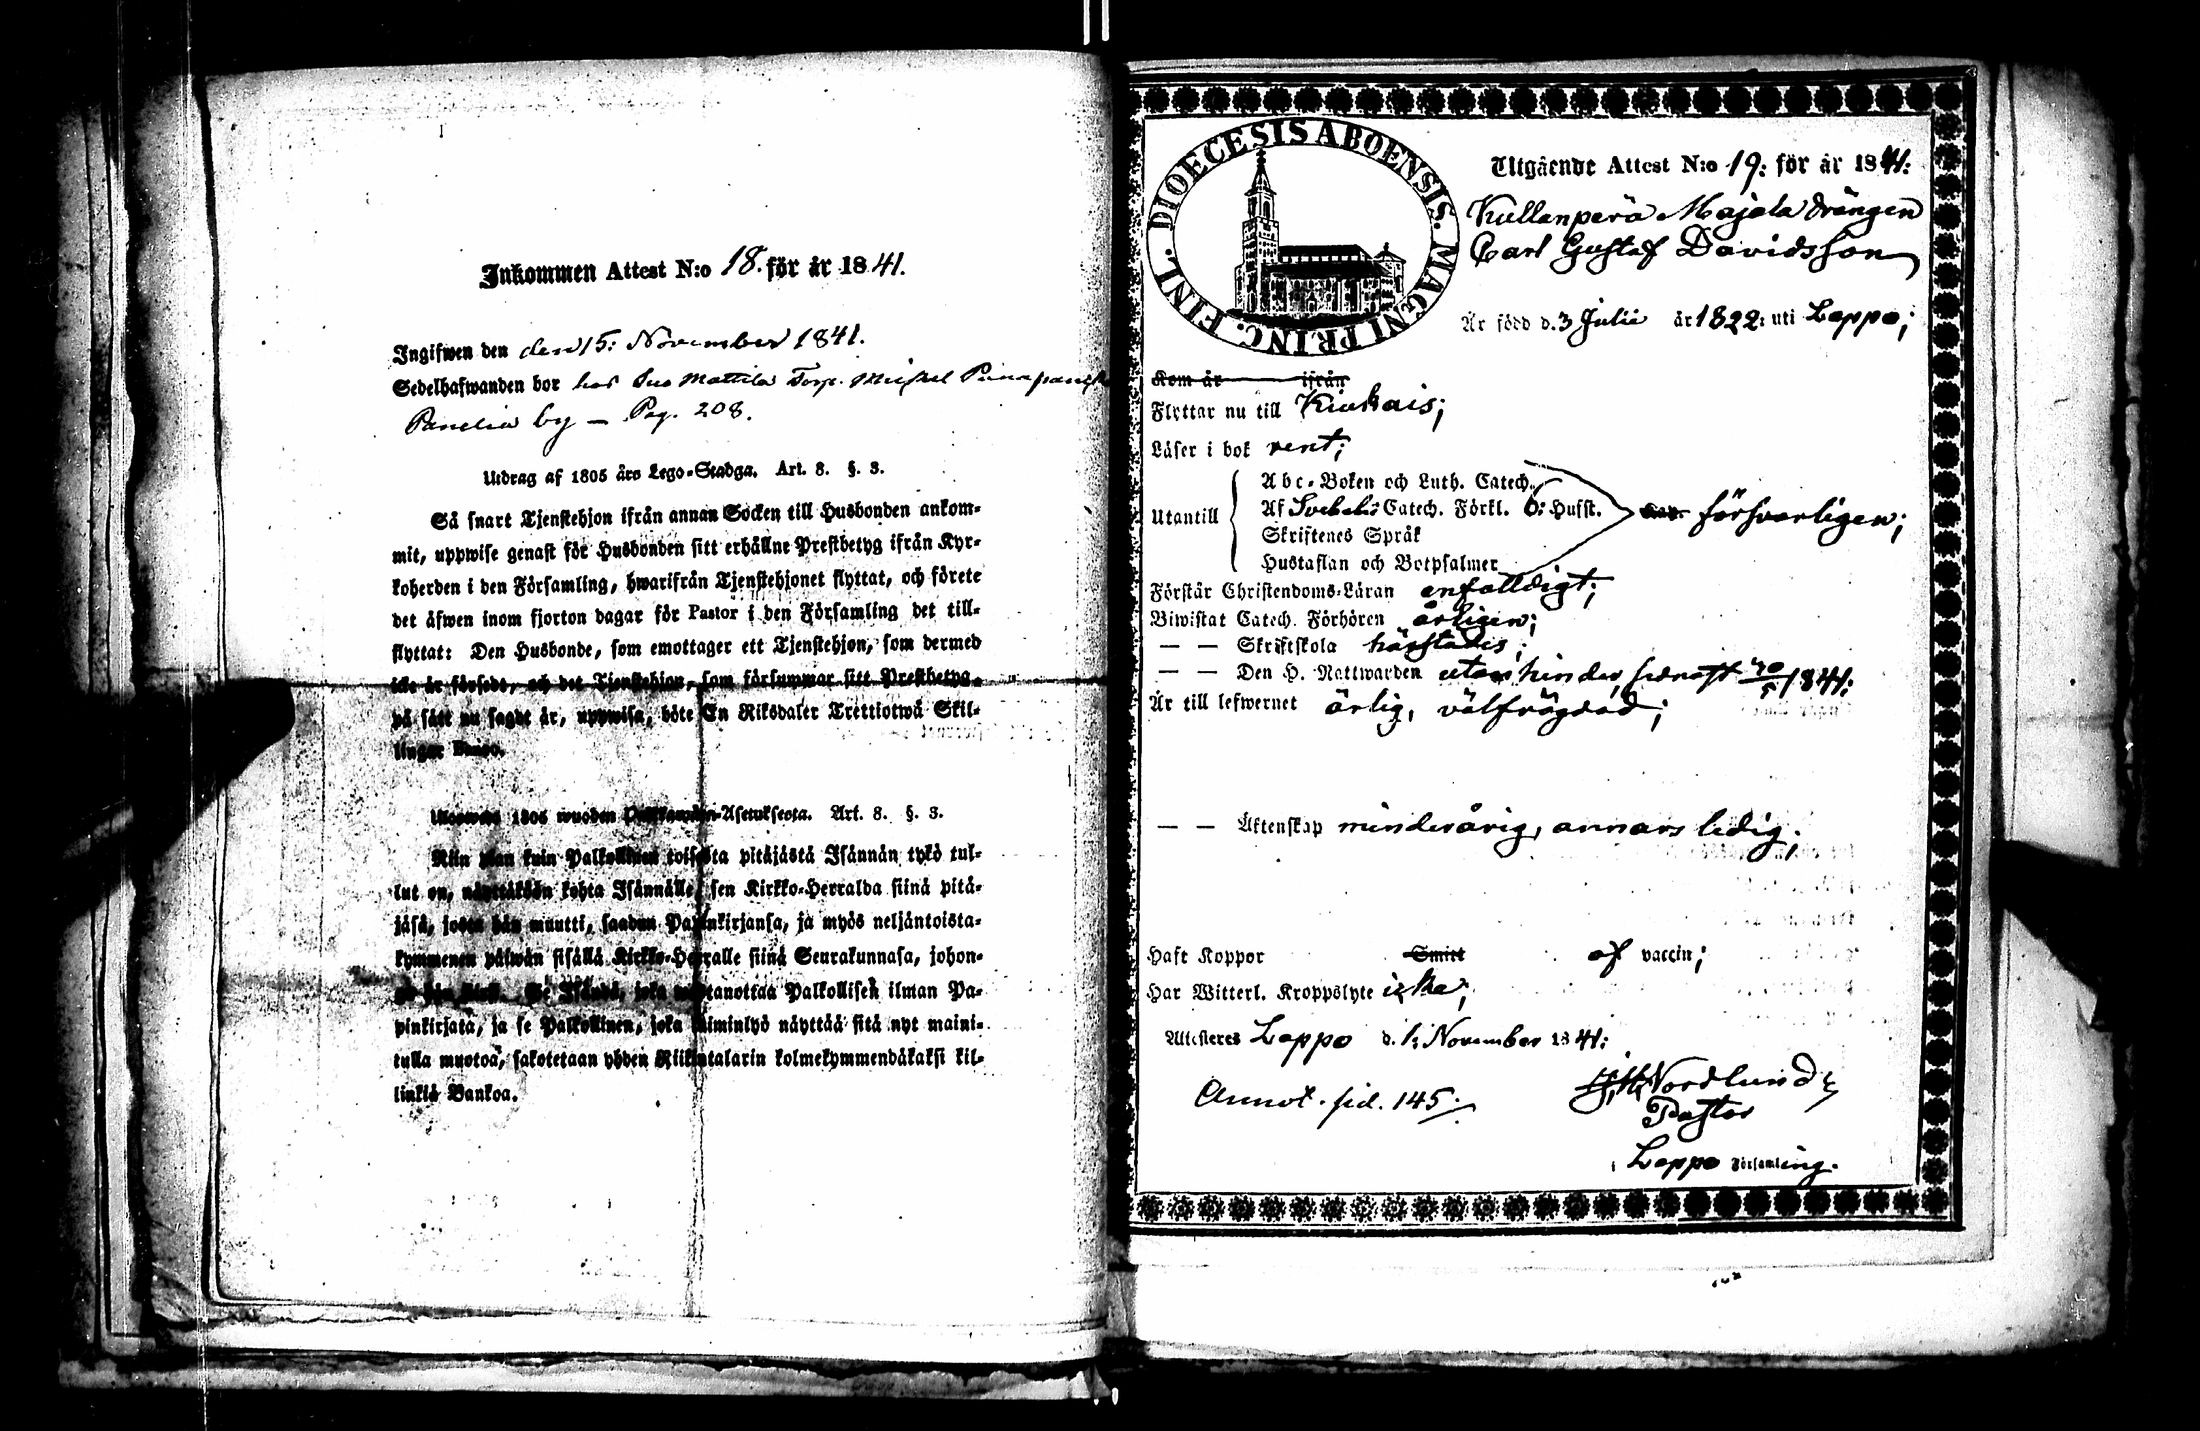 Inkommen Attest N:o 18. för år 1841.
Ingifwen den den 15: November 1841.
Sedelhafwanden bor hos Suo Mattila Torp. Michel
Panelia by – Pag. 208.
Utdrag af 1805 års Lego-Stadga. Art. 8. §. 3.
Så snart Tjenstehjon ifrån annan Socken till Husbonden ankom-
mit, uppwise genast för Husbonden sitt erhållne Prestbetyg ifrån Kyr-
koherden i den Församling, hwarifrån Tjenstehjonet flyttat, och förete
det äfwen inom fjorton dagar för Pastor i den Församling det till-
flyttat: Den Husbonde, som emottager ett Tjenstehjon, som dermed
icke är försedt, och det Tjenstehjon, som försummar sitt Prestbetyg,
på sätt nu sagdt är, uppwisa, böte En Riksdaler Trettiotwå Skil-
lingar Banco.
1805 wuoden Asetuksesta. Art. 8. §. 3.
Niin pian kuin Palkollinen toisesta pitäjästä Isännän tykö tul-
lut on, näyttäköön kohta Isännälle, sen Kirkko-Herralda siinä pitä-
jäsä, josta hän muutti, saadun Papinkirjansa, ja myös neljäntoista-
kymmenen päiwän sisällä Kirkko-Herralle siinä Seurakunnasa, johon-
Se Isändä, joka wastanottaa Palkollisen ilman Pa-
pinkirjata, ja se Palkollinen, joka laiminlyö näyttää sitä nyt maini-
tulla muotoa, sakotetaan yhden Riikintalarin kolmekymmendäkaksi kil-
linkiä Bankoa.
DIOECESIS ABOENSIS. MAGNI PRINC. FINL.
Utgående Attest N:o 19: för år 1841:
Kullanperä Majala drängen
Carl Gustaf Davidsson
Är född d. 3 Julii år 1822: uti Lappo;
Kom år ifrån
Flyttar nu till Kiukais;
Läser i bok rent;
Utantill
Abc-Boken och Luth. Catech.
Af Svebelii Catech. Förkl. 6: Hufst.
Skriftenes Språk
Hustaflan och Botpsalmer
försvarligen;
Förstår Christendoms-Läran enfalldigt;
Biwistat Catech. Förhören årligen;
— — Skriftskola härstädes;
— — Den H. Nattwarden utan hinder, sednast 1841:
Är till lefwernet ärlig, välfrägdad;
— — Äktenskap minderårig, annars ledig;
Haft Koppor Smitt af vaccin;
Har Witterl. Kroppslyte icke;
Attesteres Lappo d. 1: November 1841:
Annot. sid. 145.
Nordlund
Pastor
i Lappo Församling.